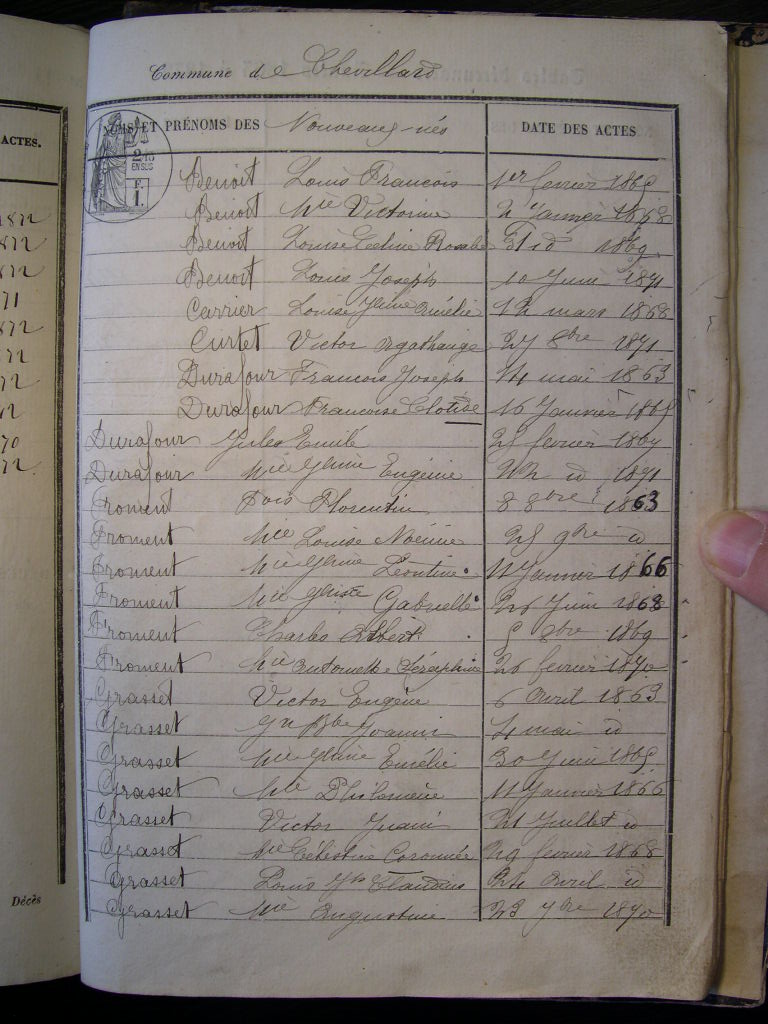 Commune de Chevillard
ACTES.
NOMS ET PRÉNOMS DES Nouveaux-nés DATE DES ACTES
2/10
EN SUS
F.
1.
Benoit Louis Francois 1er fevrier 1865
Benoit Mie Victorine 2 Janvier 1868
Benoit Louise Rosalie 31 id 1869
Benoit Louis Joseph 10 Juin 1871
Carrier Louise JSine Amélie 12 mars 1868
Curtet Victor Agathange 27 8bre 1871
Durafour Francois Joseph 14 mai 1863
Durafour Francoise Clotide 16 Janvier 1865
Durafour Jules Emile 25 fevrier 1867
Durafour Mie Eugénie 22 id 1871
Froment Florentin 8 8bre 1863
Froment Mie Louise Noémie 25 9bre id
Froment Mie Léontine 11 Janvier 1866
Froment Mie Gabrielle 26 Juin 1868
Froment Charles Albert 5 8bre 1869
Froment Mie Antoinette Séraphine 26 fevrier 1870
Grasset Victor Eugène 6 Avril 1863
Grasset Jn Bte Joanni 4 mai id
Grasset Mie Emélie 30 Juin 1865
Grasset Mie Philomène 11 Janvier 1866
Grasset Victor Juani 21 Juillet id
Grasset Mie Célestine Coronnée 29 fevrier 1868
Grasset Louis Claudius 24 Avril id
Grasset Mie Augustine 23 7bre 1870
1872
1872
1872
71
1872
72
72
70
72
Décès